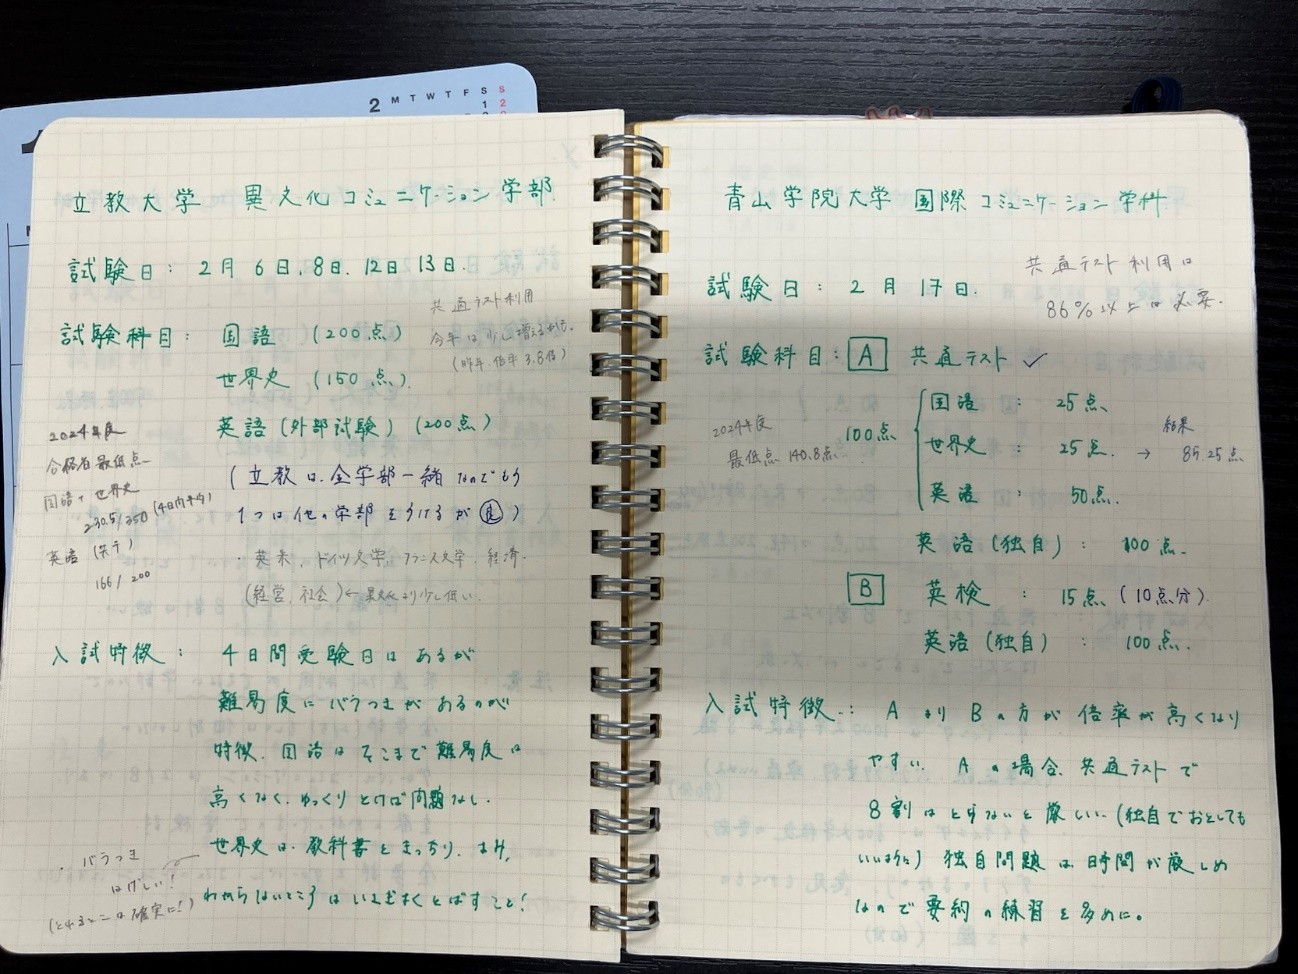 2 M T W T F S S
1 2
立教大学 異文化コミュニケーション学部
試験日: 2月 6日、8日、12日13日.
共通テスト利用
今年は少し増えるかも.
(昨年 倍率 3.8倍)
試験科目: 国語 (200点)
世界史 (150点)
英語 (外部試験) (200点)
(立教は全学部一緒なのでもう
1つは他の学部をうけるが良)
・英米、ドイツ文学、フランス文学、経済.
(経営、社会) ← 異文化より少し低い.
2024年度
合格者最低点
国語+世界史
230.5/350 (4日内平均)
英語
166/200
入試特徴: 4日間受験日はあるが
難易度にバラつきがあるのが
特徴. 国語はそこまで難易度は
高くなく、ゆっくりとけば問題なし.
世界史は、教科書をきっちり.
わからないところはいさぎよくとばすこと!
・バラつき
はげしい!
(とれるとこは確実に!)
青山学院大学 国際コミュニケーション学科
共通テスト利用は
86%以上は必要.
試験日: 2月 17日.
試験科目: A 共通テスト ✓
2024年度
最低点 140.8点
100点
国語 : 25点
世界史 : 25点. → 結果 85.25点
英語 : 50点.
英語(独自) : 100点.
B 英検 : 15点 (10点分)
英語(独自) : 100点.
入試特徴: AよりBの方が倍率が高くなり
やすい. Aの場合、共通テストで
8割はとらないと厳しい. (独自でおとしても
いいように) 独自問題は時間が厳しめ
なので要約の練習を多めに。